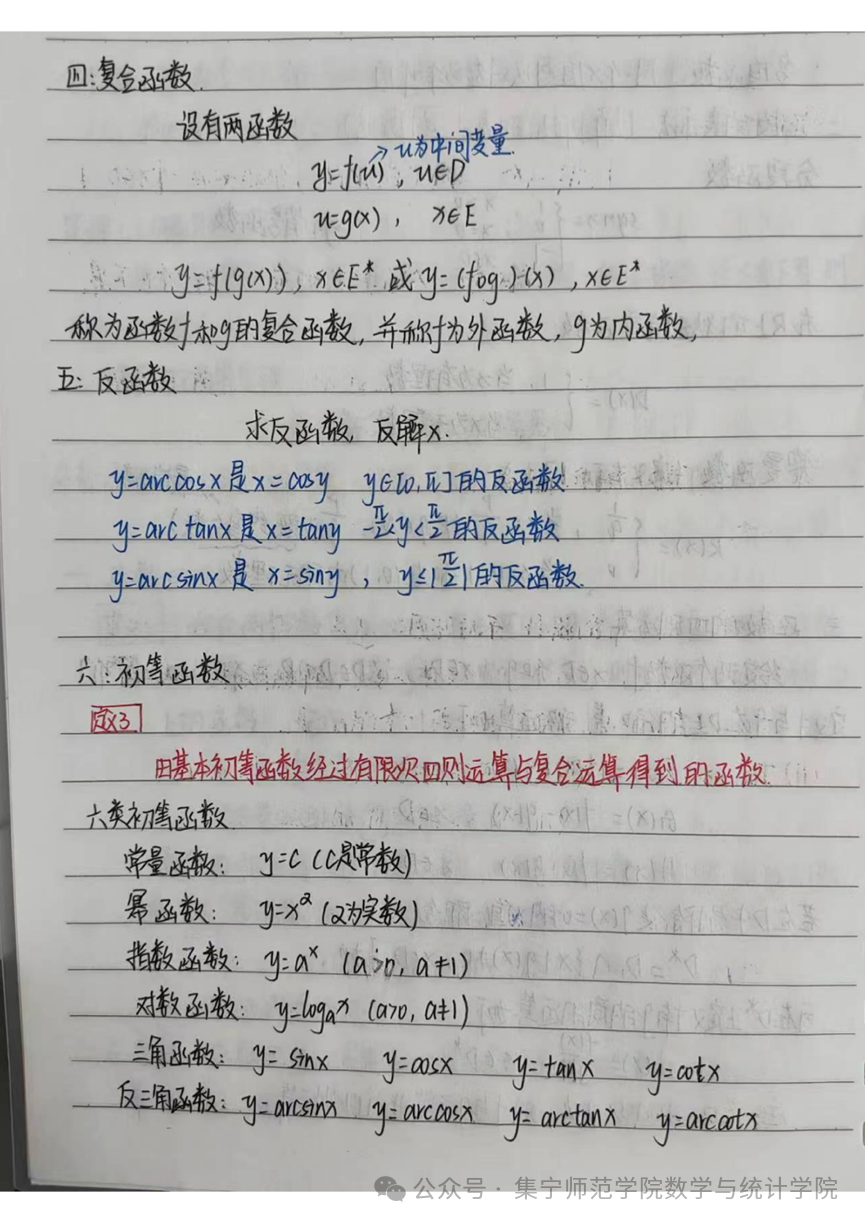 四:复合函数.
设有两函数
→u为中间变量.
y=f(u), u∈D
u=g(x), x∈E
y=f(g(x)), x∈E* 或 y=(fog)(x), x∈E*
称为函数f和g的复合函数,并称f为外函数,g为内函数,
五:反函数
求反函数,反解x.
y=arccosx是x=cosy y∈[0,π]的反函数
y=arctanx是x=tany -π/2<y<π/2的反函数
y=arcsinx是 x=siny, y≤|π/2|的反函数.
六:初等函数
定义3
由基本初等函数经过有限次四则运算与复合运算得到的函数.
六类初等函数
常量函数: y=c (C是常数)
幂函数: y=x^2 (2为实数)
指数函数: y=a^x (a>0, a≠1)
对数函数: y=log_a x (a>0, a≠1)
三角函数: y=sinx y=cosx y=tanx y=cotx
反三角函数: y=arcsinx y=arccosx y=arctanx y=arccotx
公众号·集宁师范学院数学与统计学院